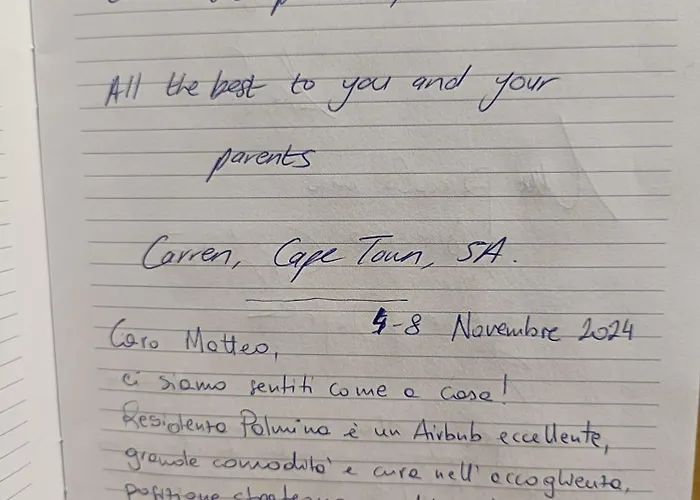 All the best to you and your
parents
Carren, Cape Town, SA.
4-8 Novembre 2024
Caro Matteo,
ci siamo sentiti come a casa!
Residenza Palmina è un Airbnb eccellente,
grande comodità e cura nell'accoglienza,
posizione